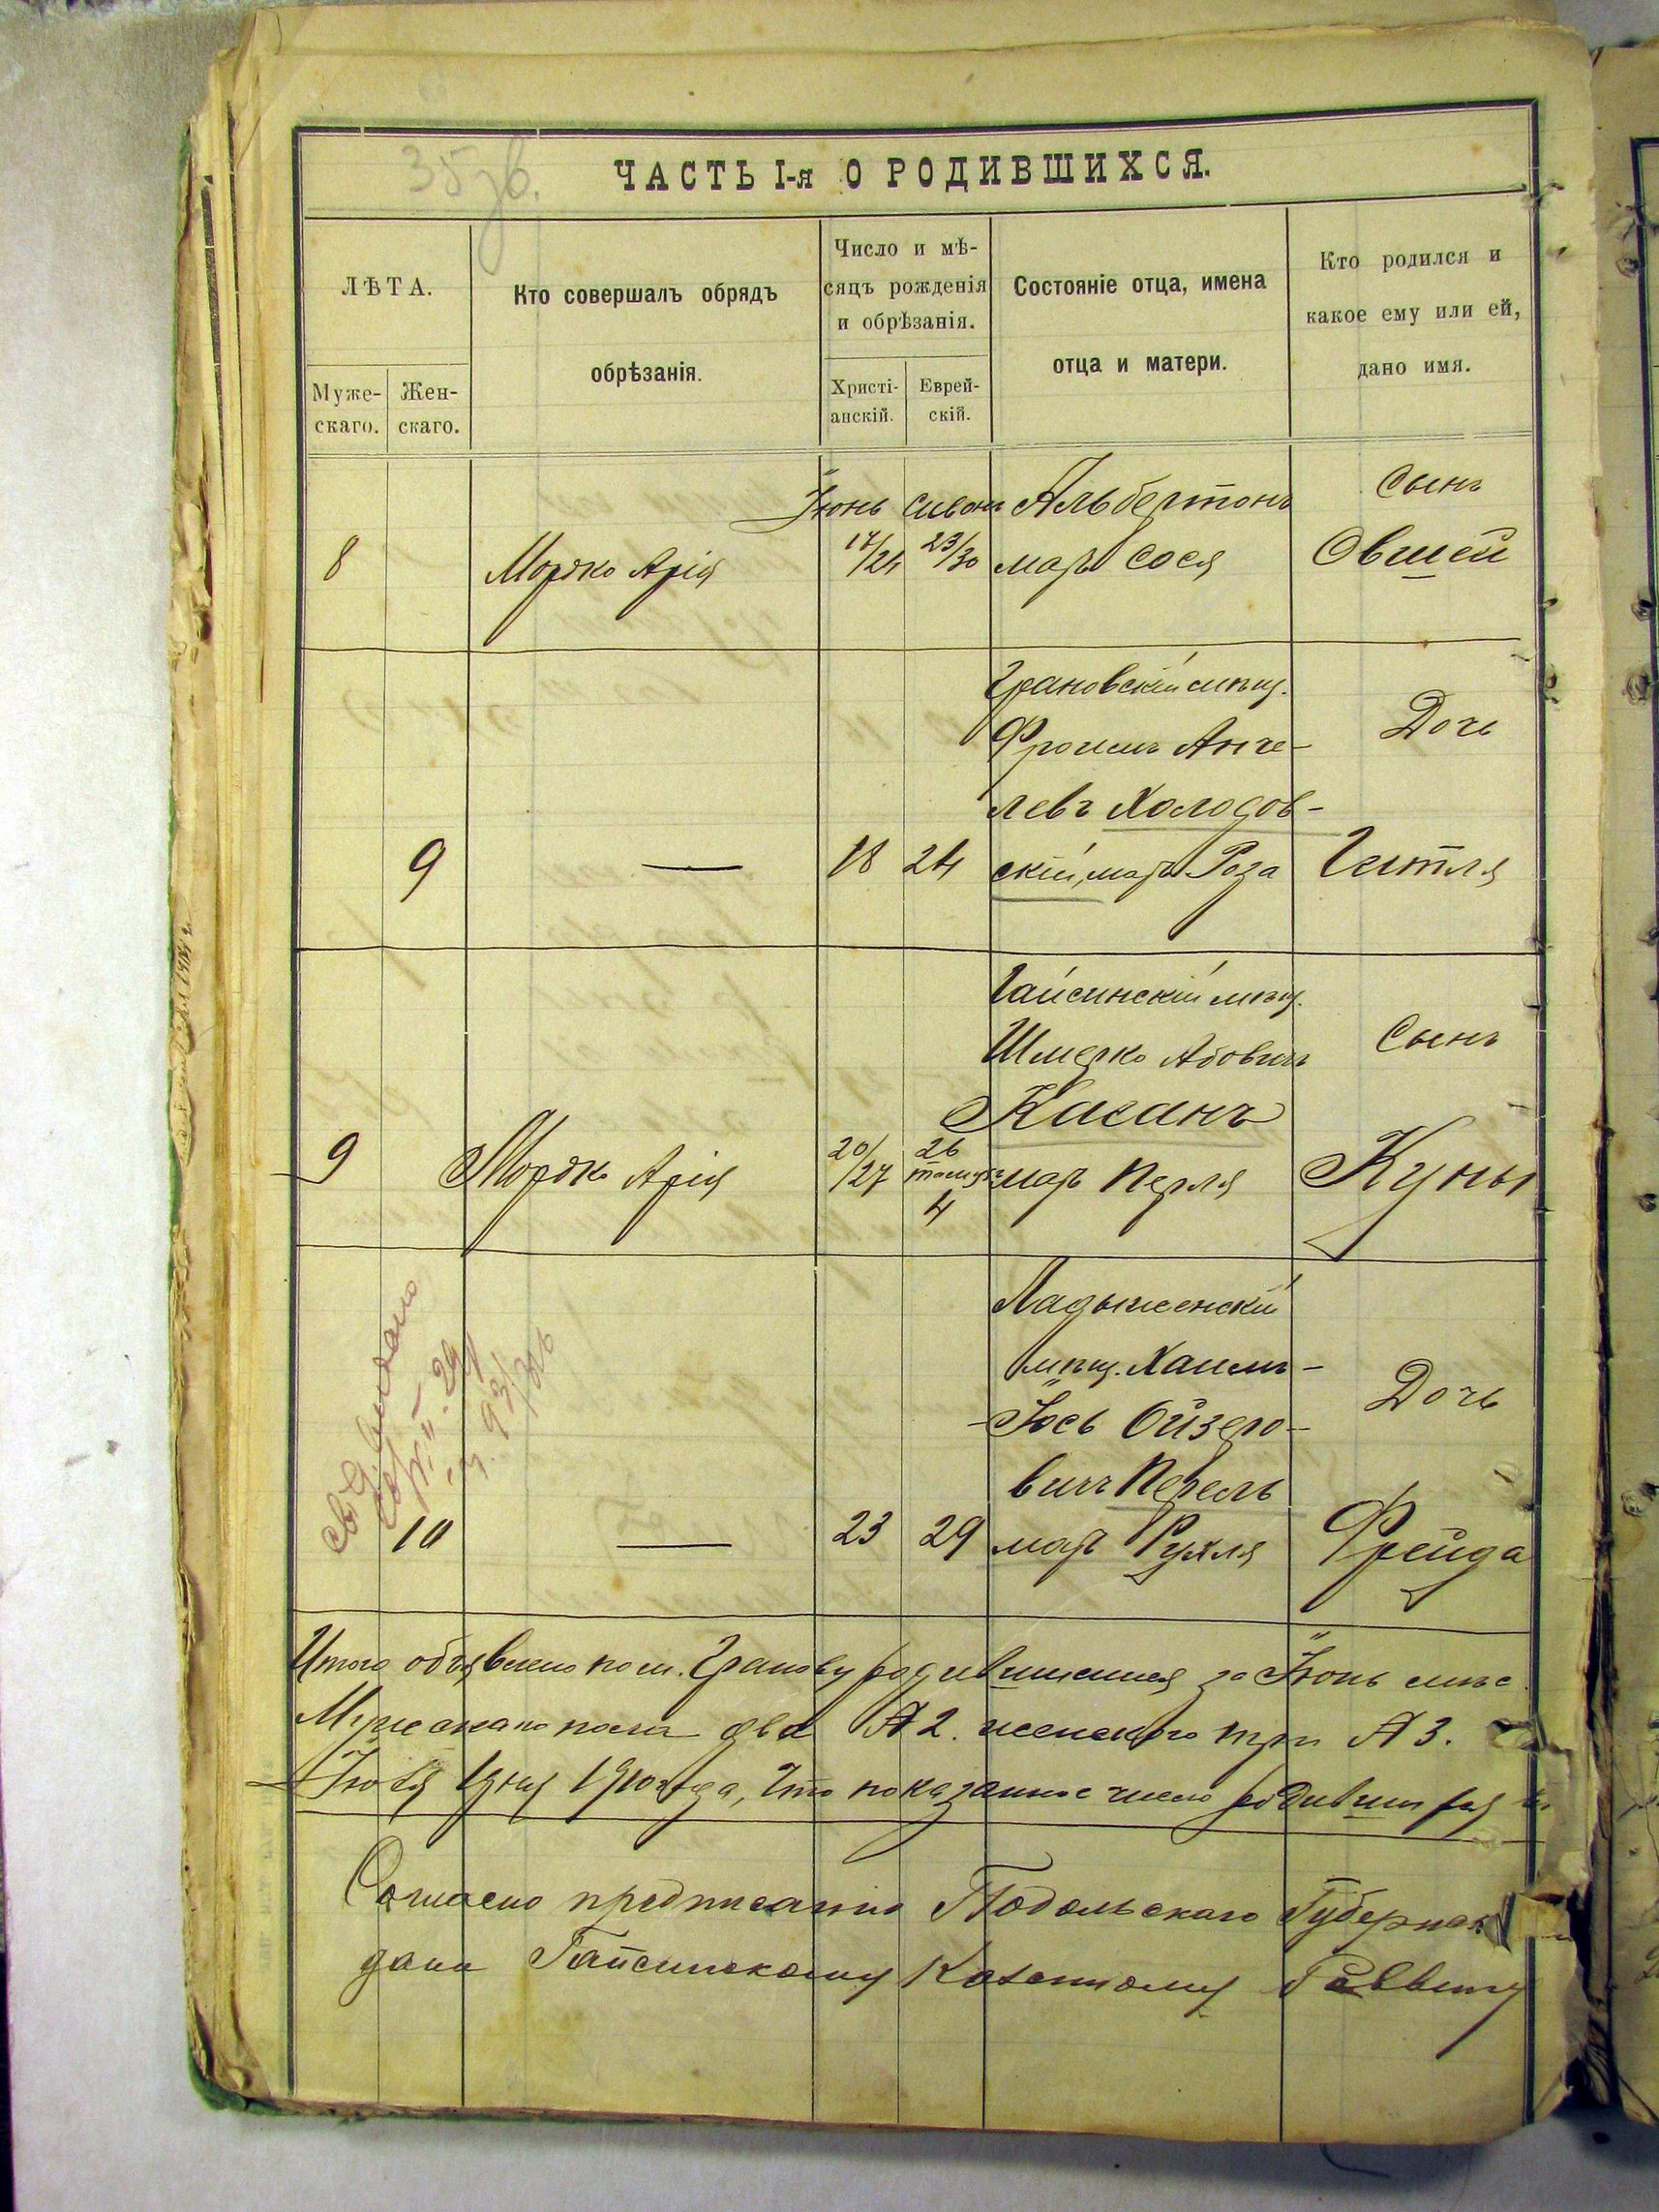 35 зв.
ЧАСТЬ I-я О РОДИВШИХСЯ.
ЛѢТА.
Муже-
скаго.
Жен-
скаго.
Кто совершалъ обрядъ
обрѣзанія.
Число и мѣ-
сяцъ рожденія
и обрѣзанія.
Христі-
анскій.
Еврей-
скій.
Состояніе отца, имена
отца и матери.
Кто родился и
какое ему или ей,
дано имя.
Іюнь Сивонъ Альбертонъ Сынъ
8 Мордко Арія 17/24 23/30 мать Сося Овшей
Грановскій мѣщ.
Фроимъ Анче-
Дочь
левъ Холодов-
9 — 18 24 скій, мать Роза Гитля
Гайсинскій мѣщ.
Шмерко Абовичъ Сынъ
Каганъ
9 Мордко Арія 20/27 26 мать Перля Куны
4
Ладыженскій
мѣщ. Хаимъ-
Дочь
Іось Ойзеро-
вичъ Перель
10 — 23 29 мать Рухля Фрейда
Итого объявлено по м. Гранову родившимися за Іюнь мѣс.
Мужескаго пола два № 2. женскаго три № 3.
Іюля 1 дня 1910 года, что показанное число родившихся
Согласно предписанію Подольскаго Губернск
дани Гайсинскому Казенному Раввину